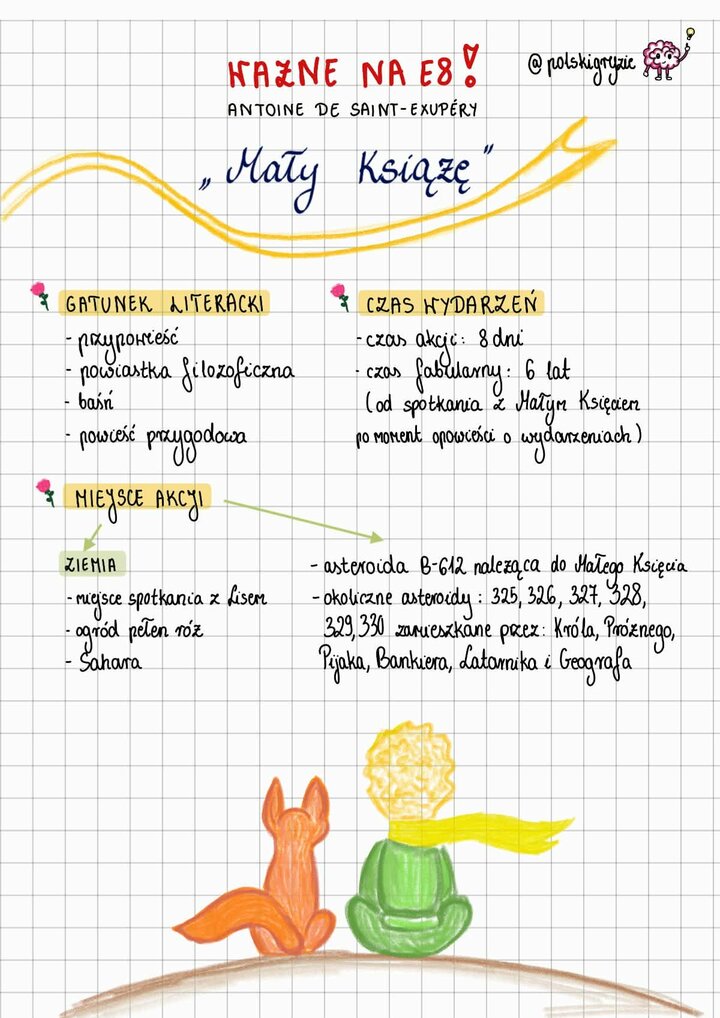 WAŻNE NA E8!
@polskigryzie
ANTOINE DE SAINT-EXUPÉRY
„Mały Książę"
GATUNEK LITERACKI
- przypowieść
- powiastka filozoficzna
- baśń
- powieść przygodowa
CZAS WYDARZEŃ
- czas akcji: 8 dni
- czas fabularny: 6 lat
(od spotkania z Małym Księciem
po moment opowieści o wydarzeniach)
MIEJSCE AKCJI
ZIEMIA
- miejsce spotkania z Lisem
- ogród pełen róż
- Sahara
- asteroida B-612 należąca do Małego Księcia
- okoliczne asteroidy: 325, 326, 327, 328,
329, 330 zamieszkane przez: Króla, Próżnego,
Pijaka, Bankiera, Latarnika i Geografa